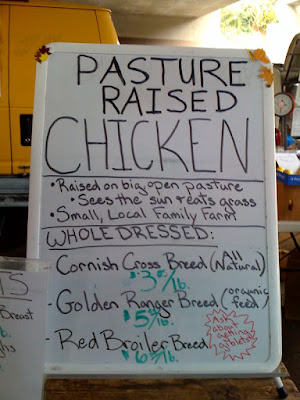 PASTURE
RAISED
CHICKEN
• Raised on big, open pasture
• Sees the sun & eats grass
• Small, Local Family Farm
WHOLE DRESSED:
- Cornish Cross Breed (All Natural)
/lb.
- Golden Ranger Breed (organic feed)
/lb.
- Red Broiler Breed
/lb.
Ask
about
getting
giblets!
Breast
lb.